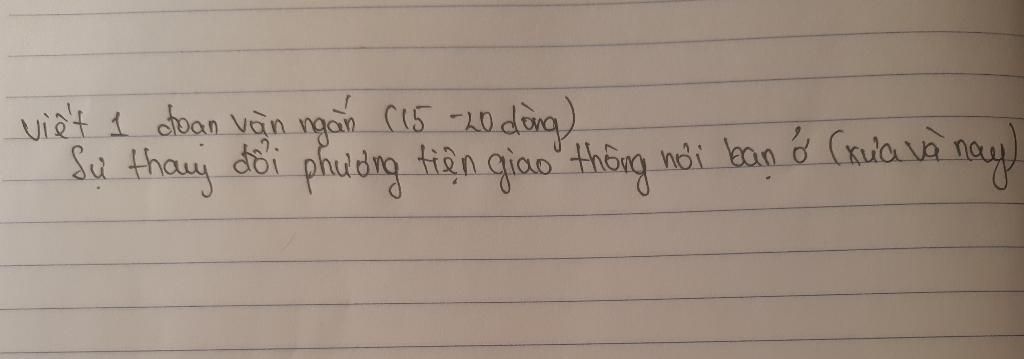 Viết 1 đoạn văn ngắn (15 -20 dòng)
Sự thay đổi phương tiện giao thông nơi bạn ở (xưa và nay)